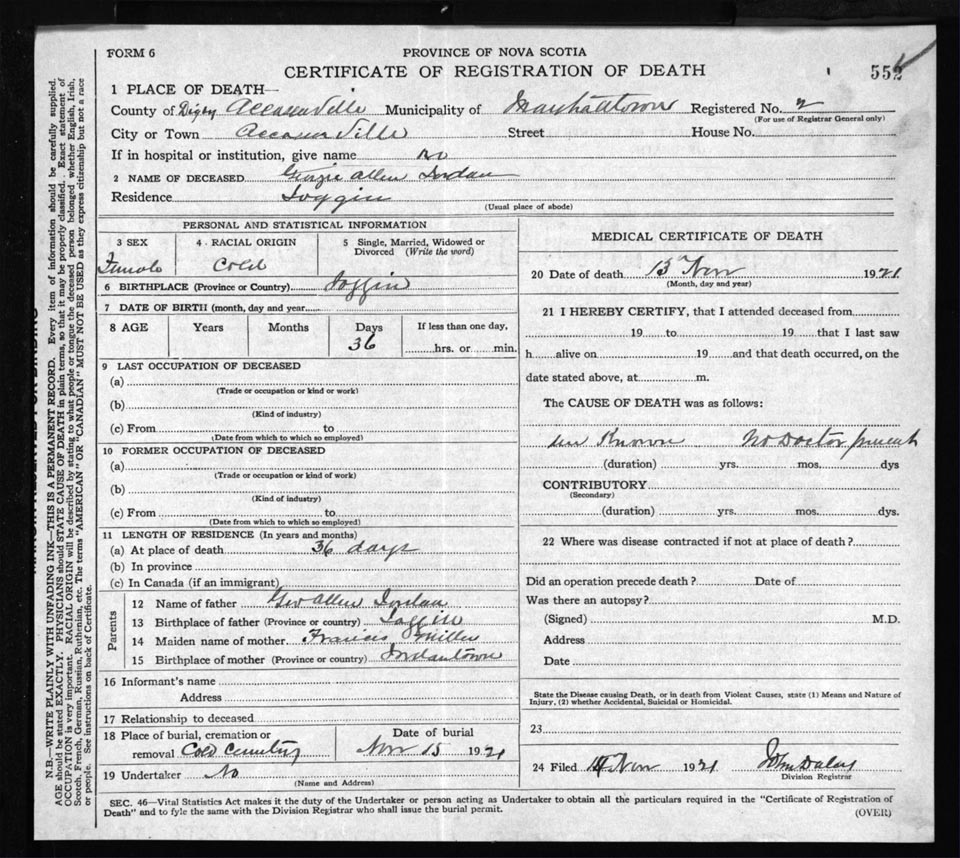 FORM 6
PROVINCE OF NOVA SCOTIA
CERTIFICATE OF REGISTRATION OF DEATH
552
1 PLACE OF DEATH—
County of Digby Accaciaville Municipality of Marshalltown Registered No. 2
(For use of Registrar General only)
City or Town Street House No.
If in hospital or institution, give name No
2 NAME OF DECEASED Allen Jordan
Residence Joggin
(Usual place of abode)
PERSONAL AND STATISTICAL INFORMATION
3 SEX
Female
4 RACIAL ORIGIN
Cold
5 Single, Married, Widowed or Divorced (Write the word)
6 BIRTHPLACE (Province or Country) Joggin
7 DATE OF BIRTH (month, day and year
8 AGE Years Months Days If less than one day,
36 hrs. or min.
9 LAST OCCUPATION OF DECEASED
(a)
(Trade or occupation or kind or work)
(b)
(Kind of industry)
(c) From to
(Date from which to which so employed)
10 FORMER OCCUPATION OF DECEASED
(a)
(Trade or occupation or kind of work)
(b)
(Kind of industry)
(c) From to
(Date from which to which so employed)
11 LENGTH OF RESIDENCE (In years and months)
(a) At place of death 36 days
(b) In province
(c) In Canada (if an immigrant)
Parents
12 Name of father Geo Allen Jordan
13 Birthplace of father (Province or country) Joggin
14 Maiden name of mother Francis Miller
15 Birthplace of mother (Province or country) Jordantown
16 Informant's name
Address
17 Relationship to deceased
18 Place of burial, cremation or
removal Cold Cemetery
Date of burial
Nov 15 1921
19 Undertaker No
(Name and Address)
MEDICAL CERTIFICATE OF DEATH
20 Date of death 13 Nov 1921
(Month, day and year)
21 I HEREBY CERTIFY, that I attended deceased from
19 to 19 that I last saw
h alive on 19 and that death occurred, on the
date stated above, at m.
The CAUSE OF DEATH was as follows:
un Known No Doctor present
(duration) yrs. mos. dys
CONTRIBUTORY
(Secondary)
(duration) yrs. mos. dys.
22 Where was disease contracted if not at place of death ?
Did an operation precede death ? Date of
Was there an autopsy?
(Signed) M.D.
Address
Date
State the Disease causing Death, or in death from Violent Causes, state (1) Means and Nature of
Injury, (2) whether Accidental, Suicidal or Homicidal.
23
24 Filed Nov 1921 John Daley
Division Registrar
SEC. 46—Vital Statistics Act makes it the duty of the Undertaker or person acting as Undertaker to obtain all the particulars required in the "Certificate of Registration of
Death" and to fyle the same with the Division Registrar who shall issue the burial permit.
(OVER)
N.B.—WRITE PLAINLY WITH UNFADING INK—THIS IS A PERMANENT RECORD. Every item of information should be carefully supplied.
AGE should be stated EXACTLY. PHYSICIANS should STATE CAUSE OF DEATH in plain terms, so that it may be properly classified. Exact statement of
OCCUPATION is very important. RACIAL ORIGIN will be described by stating to what people or tongue the deceased person belonged whether English, Irish,
Scotch, French, German, Russian, Ruthenian, etc. The terms "AMERICAN" OR "CANADIAN" MUST NOT BE USED as they express citizenship but not a race
or people. See instructions on back of Certificate.